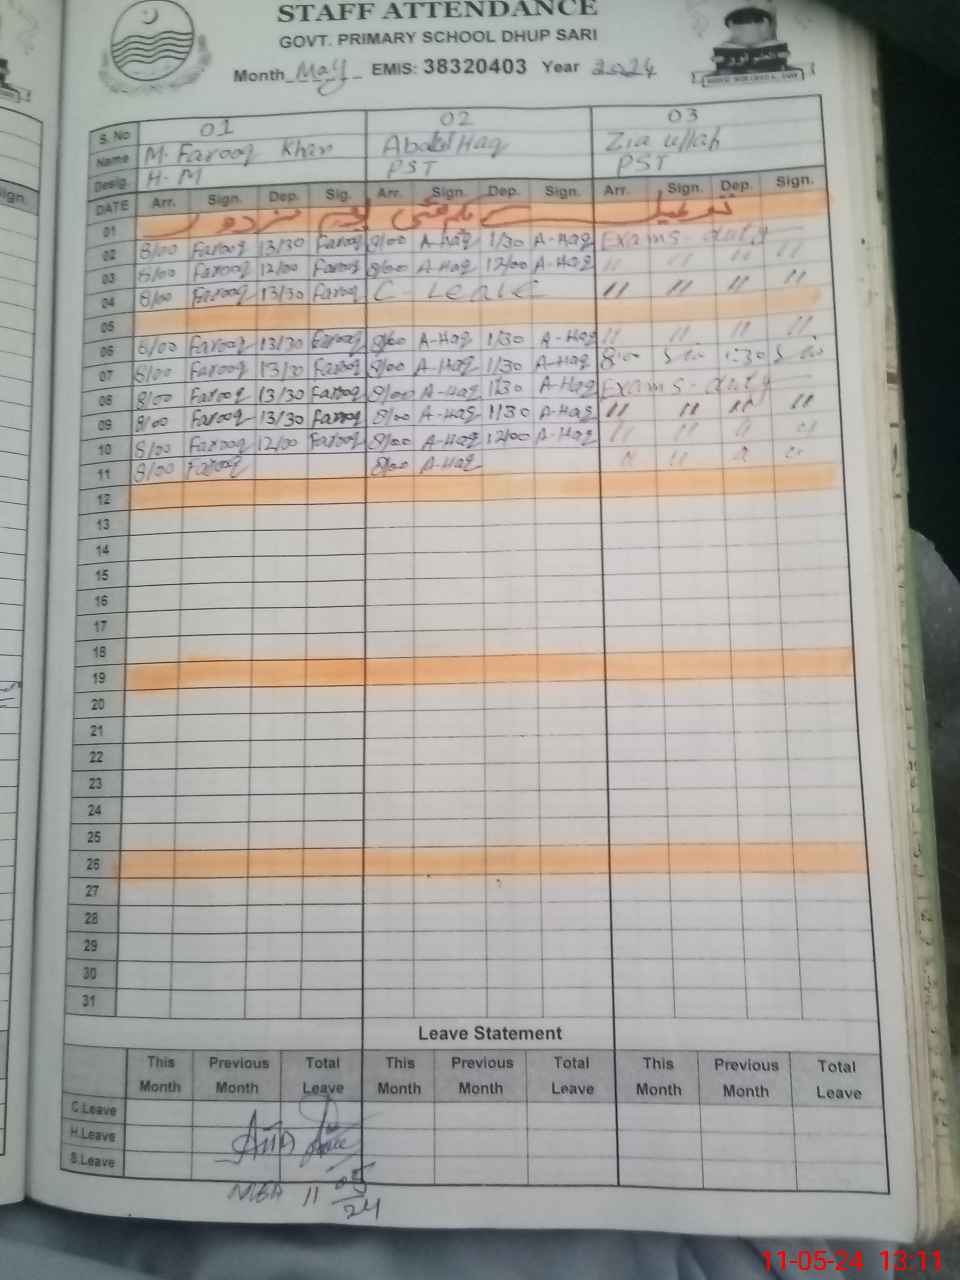 STAFF ATTENDANCE
GOVT. PRIMARY SCHOOL DHUP SARI
Month May EMIS: 38320403 Year 2024
S. No 01 02 03
Name M. Farooq Khan Abdul Haq Zia ullah
Desig. H-M PST PST
DATE Arr. Sign. Dep. Sig. Arr. Sign. Dep. Sign. Arr. Sign. Dep. Sign.
01 تعطیل
02 8/00 Farooq 13/30 Farooq 8/00 A-Haq 1/30 A-Haq Exams-duty
03 8/00 Farooq 12/00 Farooq 8/00 A-Haq 12/00 A-Haq " " " "
04 8/00 Farooq 13/30 Farooq C-Leave " " " "
05
06 8/00 Farooq 13/30 Farooq 8/00 A-Haq 1/30 A-Haq " " " "
07 8/00 Farooq 13/30 Farooq 8/00 A-Haq 1/30 A-Haq 8:00 1:30
08 8/00 Farooq 13/30 Farooq 8/00 A-Haq 1/30 A-Haq Exams-duty
09 8/00 Farooq 13/30 Farooq 8/00 A-Haq 1/30 A-Haq " " " "
10 8/00 Farooq 12/00 Farooq 8/00 A-Haq 12/00 A-Haq " " " "
11 8/00 Farooq 8/00 A-Haq " " " "
12
13
14
15
16
17
18
19
20
21
22
23
24
25
26
27
28
29
30
31
Leave Statement
This Month Previous Month Total Leave This Month Previous Month Total Leave This Month Previous Month Total Leave
C.Leave
H.Leave
S.Leave
MEA 11 05/24
11-05-24 13:11